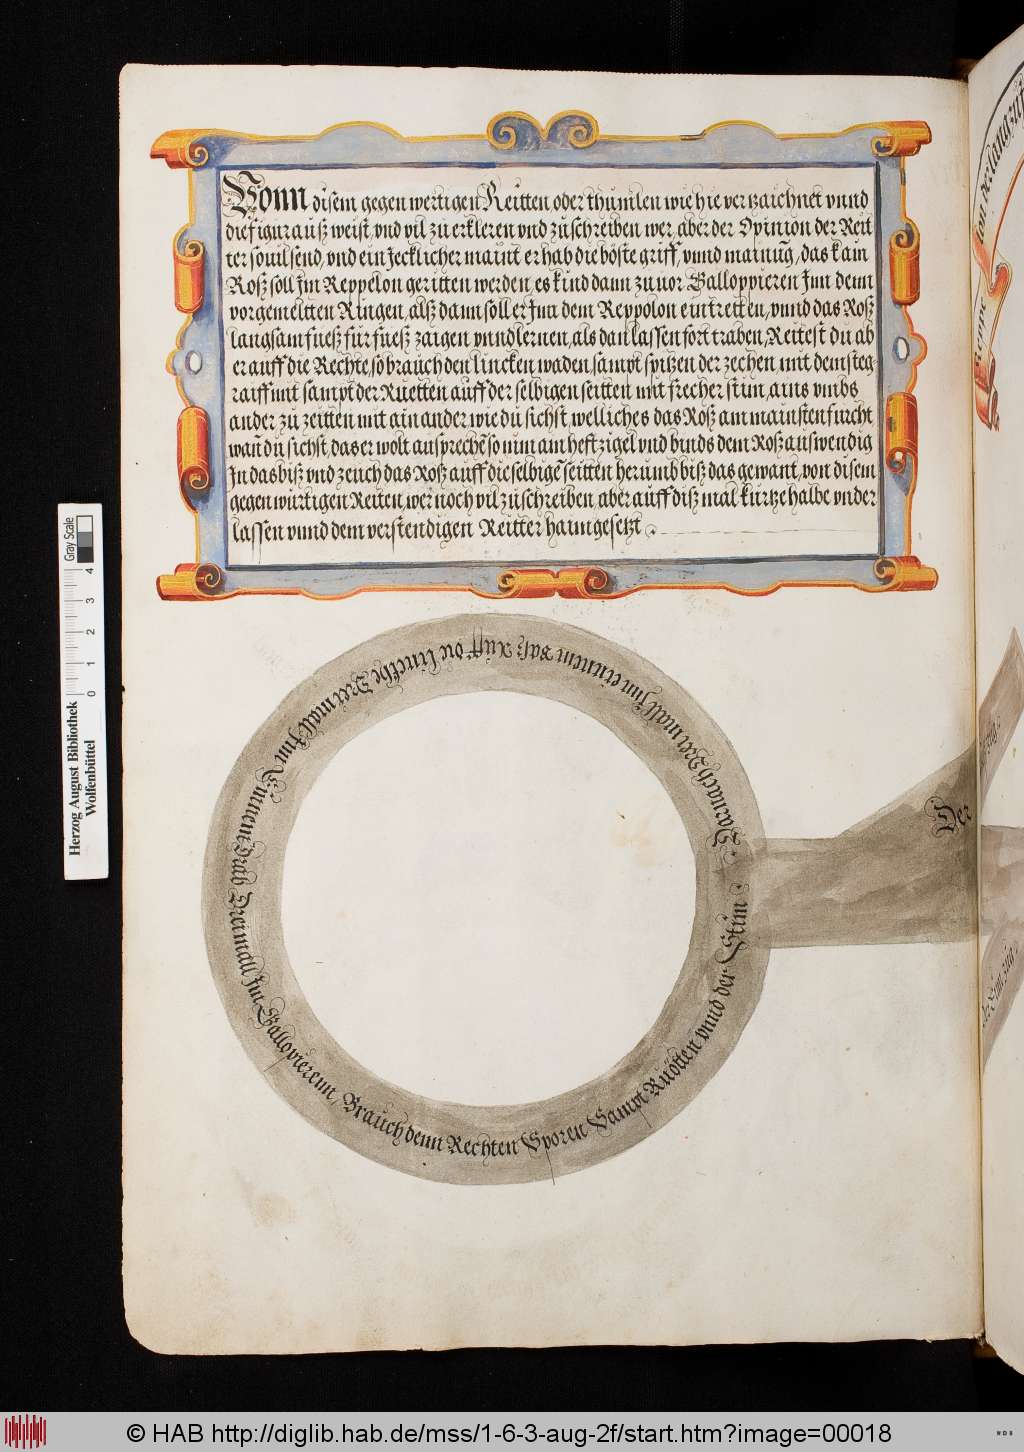 Vonn disem gegen wertigen Reitten oder thumlen wie hie vertzaichnet vnnd
die figur auß weist, vnd vil zu erkleren vnd zu schreiben wer, aber der Opinion der Reit
ter souil send, vnd ein Jecklicher maint er hab die böste griff, vnnd mainung, das kain
Roß soll Jm Reppelon geritten werden, es kind dann zuuor Galloppieren Jnn denn
vorgemeltten Ringen, alß dann soll er Jnn dem Reppolon eintretten, vnnd das Roß
langsam fueß für fueß zaigen vnnd lernen, als dan lassen fort traben, Reitest du ab
er auff die Rechte, so brauch den lincken waden, sampt spitzen der zechen mit dem steg-
raiff mit sampt der Ruetten auff der selbigen seitten mit frecher stim, ains vmbs
ander zu zeitten mit ain ander wie du sichst, welliches das Roß am maisten furcht
wañ du sichst, das er wolt ansprechẽ so nim ain heft zigel vnd binds dem Roß auswendig
Jn das biß vnd zeuch das Roß auff die selbigẽ seitten herumb biß das gewant, von disem
gegen würtigen Reiten, wer noch vil zu schreiben, aber auff diß mal kurtze halbe vnder
lassen vnnd dem verstendigen Reitter haimgesetzt.
Darnach Drei mall Jnn einnem Paß Auff die linckhe Drei mall Jnn Einnem Drab Drei mall Jm Gallopierenn, Brauch denn Rechten Sporen Sampt Ruotten vnnd der Stim.
Der
Herzog August Bibliothek
Wolfenbüttel
0 1 2 3 4
Gray Scale
© HAB http://diglib.hab.de/mss/1-6-3-aug-2f/start.htm?image=00018